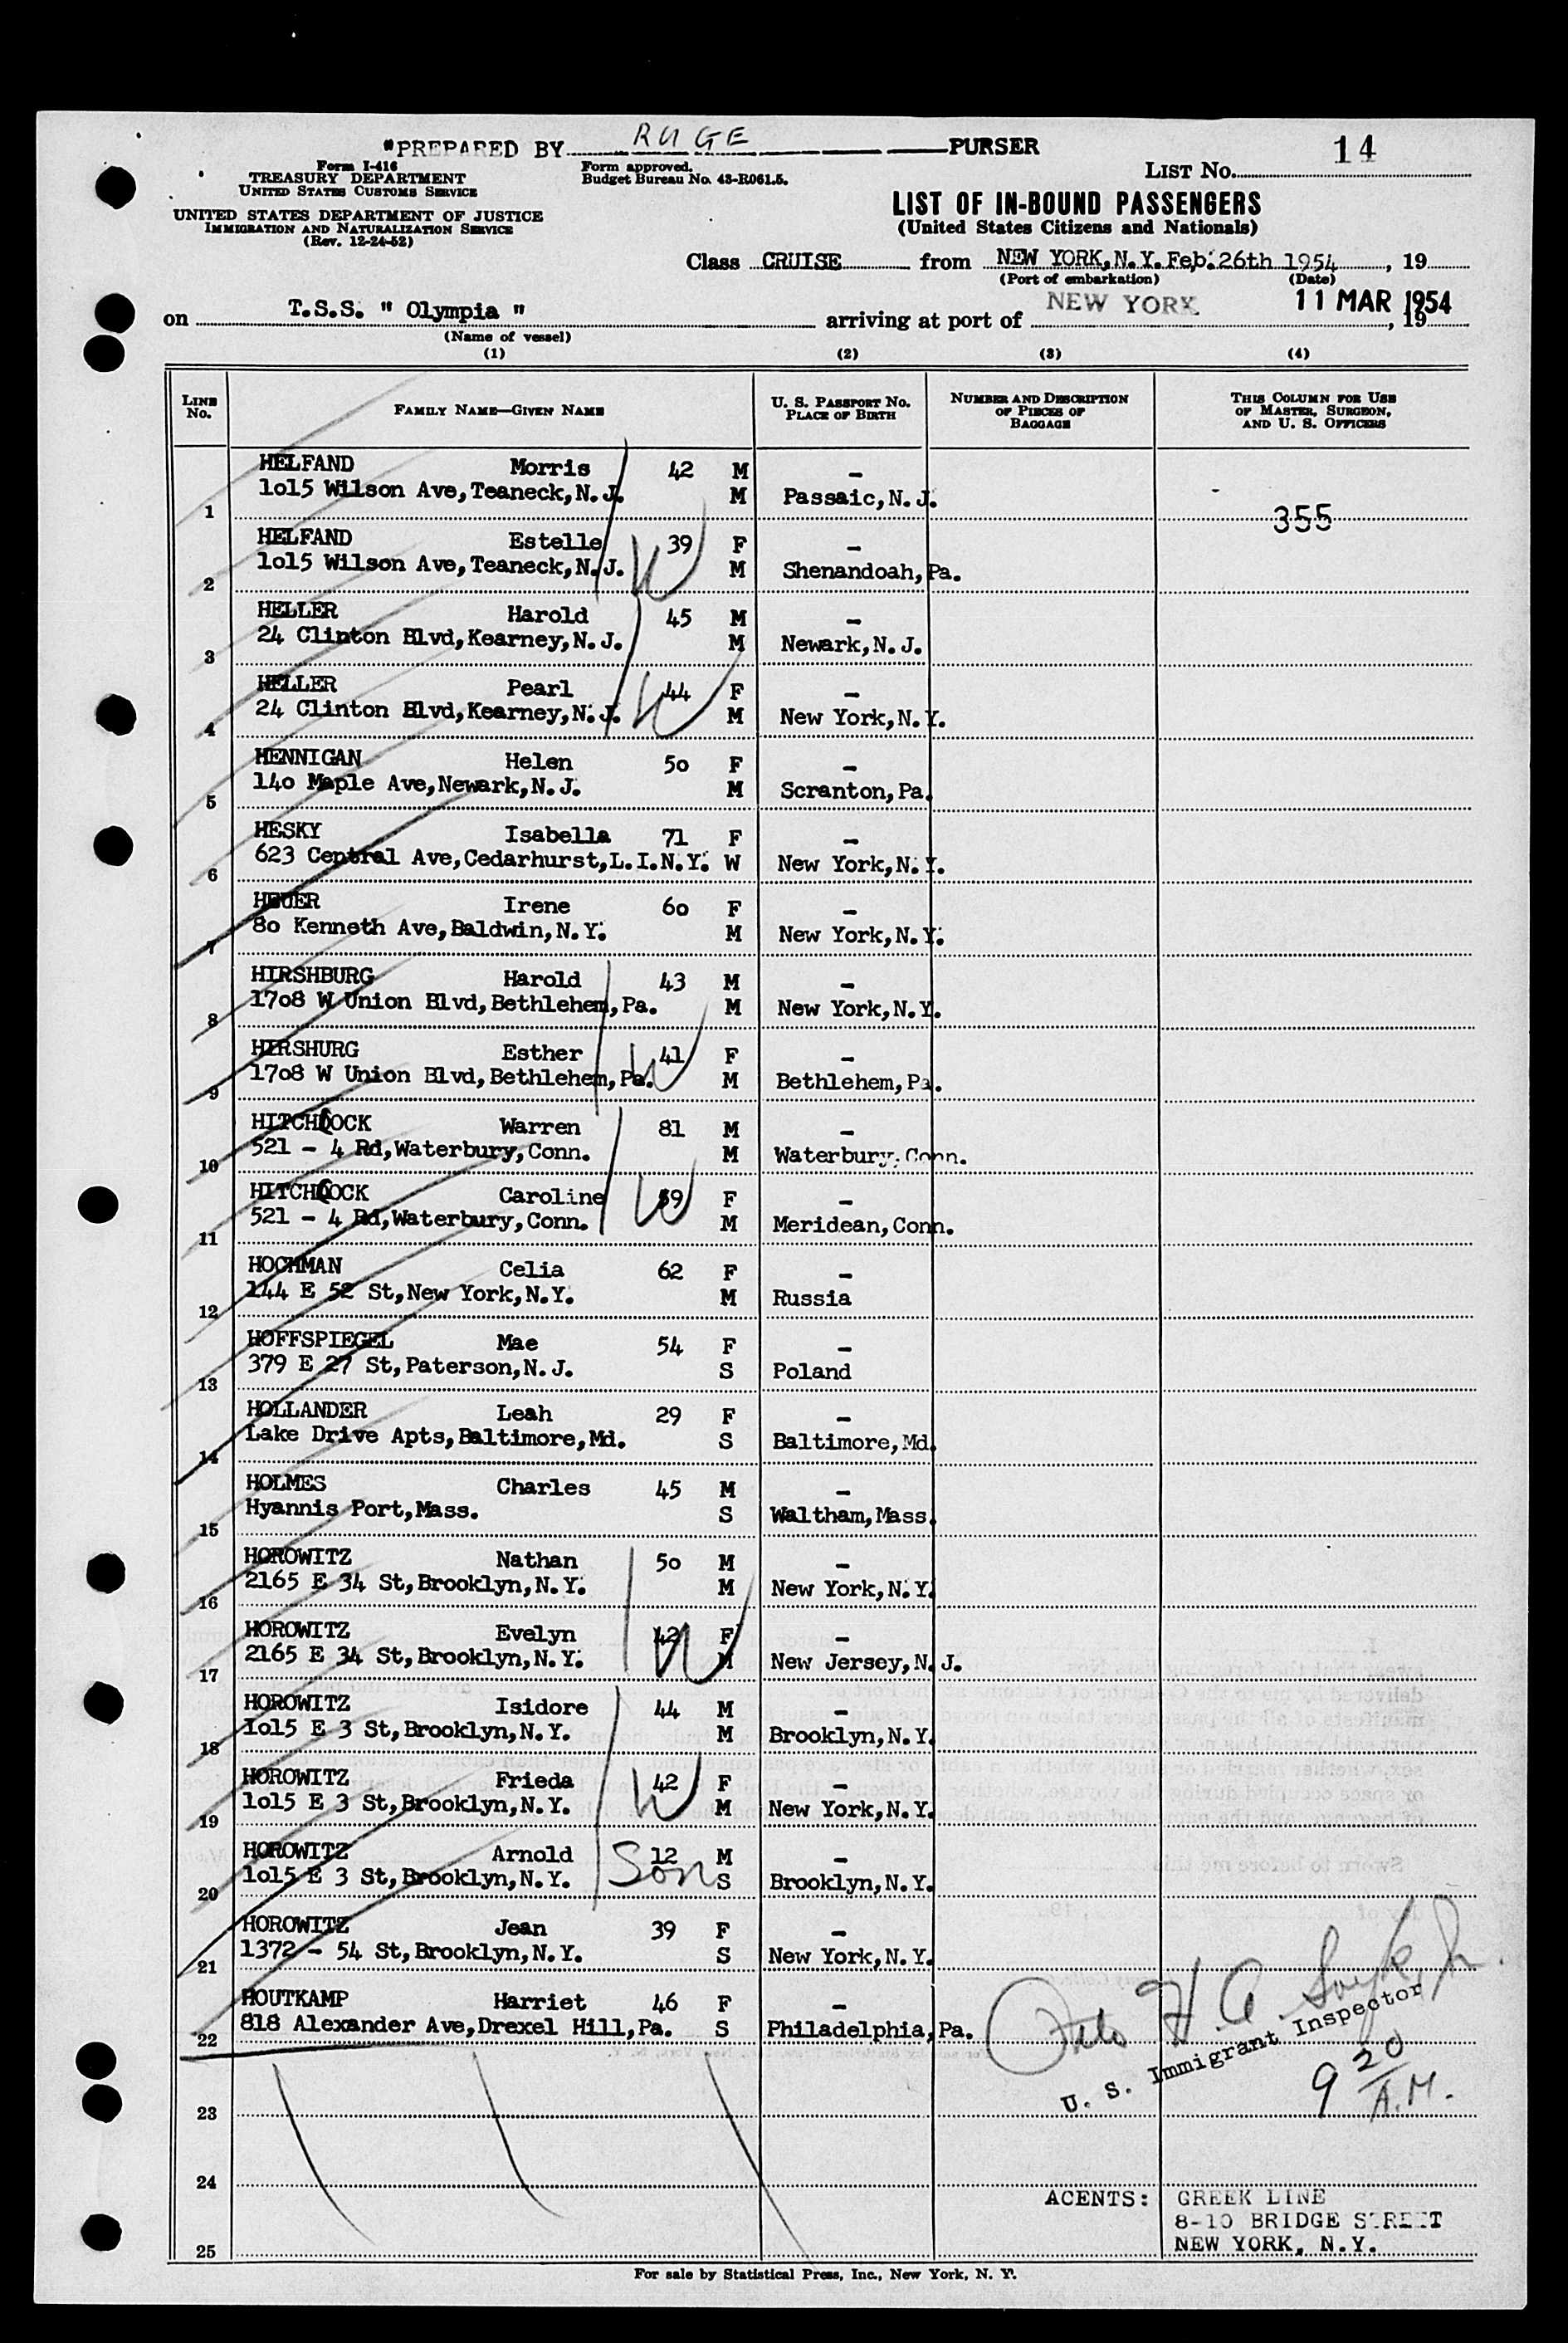 "PREPARED BY RUGE PURSER
Form I-416
TREASURY DEPARTMENT
UNITED STATES CUSTOMS SERVICE
Form approved.
Budget Bureau No. 43-R061.5.
LIST No. 14
UNITED STATES DEPARTMENT OF JUSTICE
IMMIGRATION AND NATURALIZATION SERVICE
(Rev. 12-24-52)
LIST OF IN-BOUND PASSENGERS
(United States Citizens and Nationals)
Class CRUISE from NEW YORK, N.Y. Feb. 26th 1954, 19
(Port of embarkation) (Date)
on T.S.S. " Olympia " arriving at port of NEW YORK 11 MAR 1954, 19
(Name of vessel)
(1) (2) (3) (4)
LINE No. FAMILY NAME—GIVEN NAME U. S. PASSPORT No. PLACE OF BIRTH NUMBER AND DESCRIPTION OF PIECES OF BAGGAGE THIS COLUMN FOR USE OF MASTER, SURGEON, AND U. S. OFFICERS
HELFAND Morris 42 M -
1o15 Wilson Ave,Teaneck,N.J. M Passaic,N.J.
1 355
HELFAND Estelle W 39 F -
1o15 Wilson Ave,Teaneck,N.J. M Shenandoah,Pa.
2
HELLER Harold 45 M -
24 Clinton Blvd,Kearney,N.J. M Newark,N.J.
3
HELLER Pearl W 44 F -
24 Clinton Blvd,Kearney,N.J. M New York,N.Y.
4
HENNIGAN Helen 5o F -
14o Maple Ave,Newark,N.J. M Scranton,Pa.
5
HESKY Isabella 71 F -
623 Central Ave,Cedarhurst,L.I.N.Y. W New York,N.Y.
6
HEUER Irene 6o F -
8o Kenneth Ave,Baldwin,N.Y. M New York,N.Y.
7
HIRSHBURG Harold 43 M -
17o8 W Union Blvd,Bethlehem,Pa. M New York,N.Y.
8
HIRSHURG Esther W 41 F -
17o8 W Union Blvd,Bethlehem,Pa. M Bethlehem,Pa.
9
HITCHCOCK Warren 81 M -
521 - 4 Rd,Waterbury,Conn. M Waterbury,Conn.
10
HITCHCOCK Caroline W 59 F -
521 - 4 Rd,Waterbury,Conn. M Meridean,Conn.
11
HOCHMAN Celia 62 F -
144 E 52 St,New York,N.Y. M Russia
12
HOFFSPIEGEL Mae 54 F -
379 E 27 St,Paterson,N.J. S Poland
13
HOLLANDER Leah 29 F -
Lake Drive Apts,Baltimore,Md. S Baltimore,Md.
14
HOLMES Charles 45 M -
Hyannis Port,Mass. S Waltham,Mass.
15
HOROWITZ Nathan 5o M -
2165 E 34 St,Brooklyn,N.Y. M New York,N.Y.
16
HOROWITZ Evelyn W 42 F -
2165 E 34 St,Brooklyn,N.Y. M New Jersey,N.J.
17
HOROWITZ Isidore 44 M -
1o15 E 3 St,Brooklyn,N.Y. M Brooklyn,N.Y.
18
HOROWITZ Frieda W 42 F -
1o15 E 3 St,Brooklyn,N.Y. M New York,N.Y.
19
HOROWITZ Arnold 12 M -
1o15 E 3 St,Brooklyn,N.Y. Son S Brooklyn,N.Y.
20
HOROWITZ Jean 39 F -
1372 - 54 St,Brooklyn,N.Y. S New York,N.Y.
21
HOUTKAMP Harriet 46 F -
818 Alexander Ave,Drexel Hill,Pa. S Philadelphia,Pa.
22
U. S. Immigrant Inspector
9 20 A.M.
23
24
ACENTS: GREEK LINE
8-10 BRIDGE STREET
NEW YORK, N.Y.
25
For sale by Statistical Press, Inc., New York, N. Y.